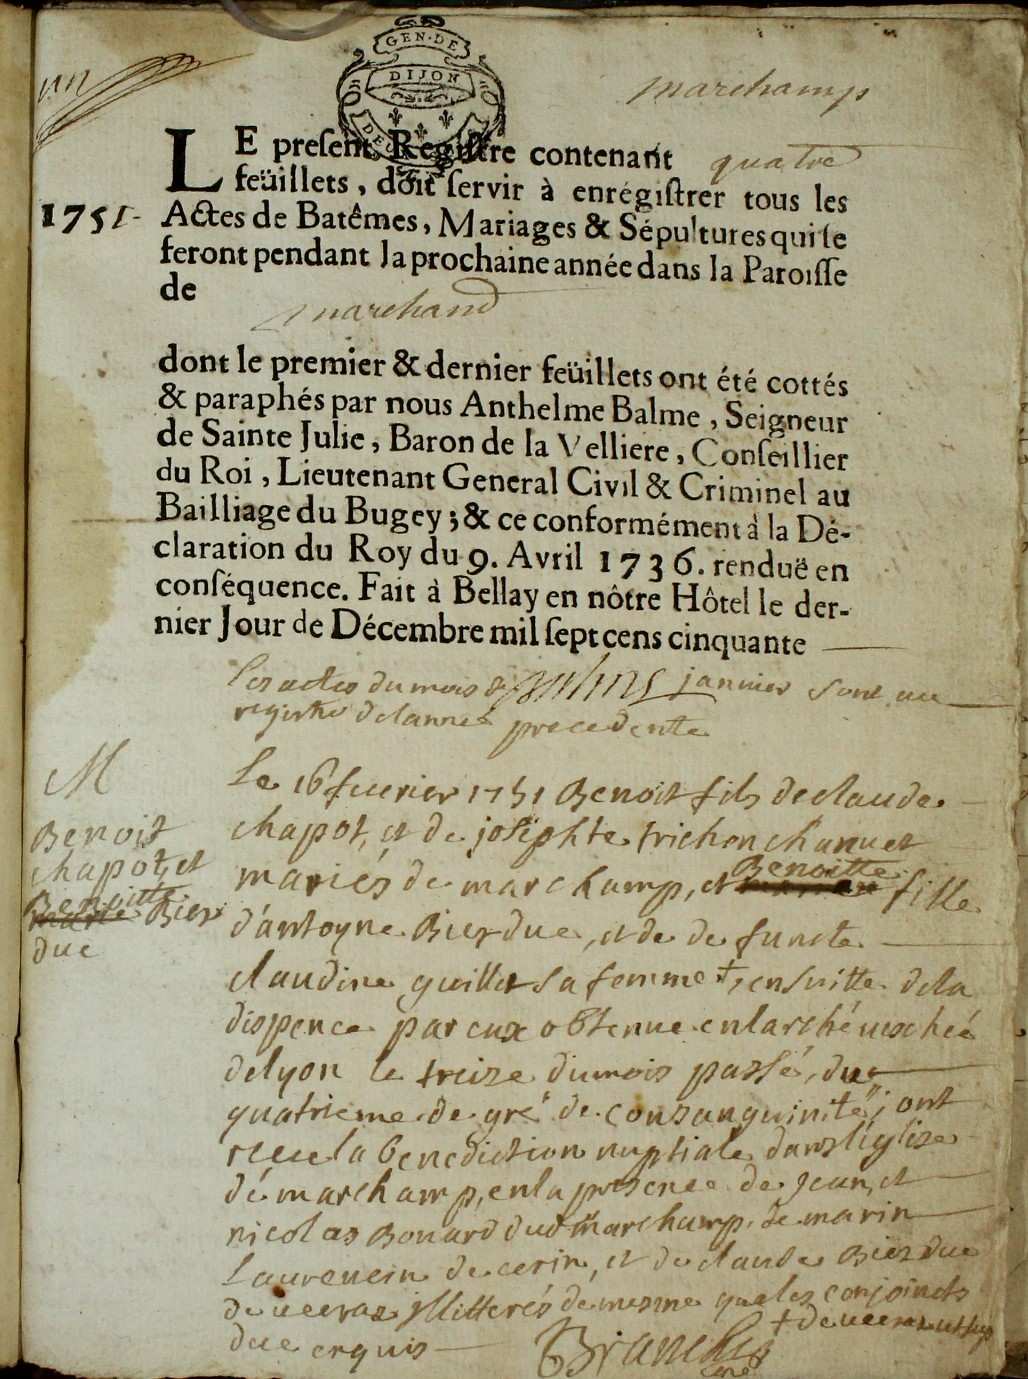 GEN·DE
DIJON
un
marchamp
LE preſent Regiſtre contenant quatre
feüillets, doit ſervir à enrégiſtrer tous les
1751
Actes de Batêmes, Mariages & Sépultures qui ſe
feront pendant la prochaine année dans la Paroiſſe
de
marchand
dont le premier & dernier feüillets ont été cottés
& paraphés par nous Anthelme Balme, Seigneur
de Sainte Julie, Baron de la Velliere, Conſeillier
du Roi, Lieutenant General Civil & Criminel au
Bailliage du Bugey; & ce conformément à la Dé-
claration du Roy du 9. Avril 1736. renduë en
conſéquence. Fait à Bellay en nôtre Hôtel le der-
nier Jour de Décembre mil ſept cens cinquante
les actes du mois de janvier sont au
registre de lannee precedente
M
Benoit
chapot, et
Benoitte Bier
due
le 16 fuerier 1751 Benoit fils de claude
chapot, et de josephte trichon chanuet
mariés de marchamp, et Benoitte fille
d'antoyne Bierdue, et de defuncte
claudine guillet sa femme +, ensuitte de la
dispence par eux obtenue en larchéueschée
de lyon le treize du mois passé, du
quatrieme degré de consanguinité, ont
receu la benediction nuptiale dans léglise
de marchamp, en la presence de jean, et
nicolas Bonard dud marchamp, de marin
laurencin de cerin, et de claude Bierdue
de ueeraz illitterés de mesme que les conjoincts
+ de ueeraz
due enquis